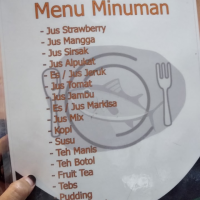 Menu Minuman
- Jus Strawberry
- Jus Mangga
- Jus Sirsak
- Jus Alpukat
- Es / Jus Jeruk
- Jus Tomat
- Jus Jambu
- Es / Jus Markisa
- Jus Mix
- Kopi
- Susu
- Teh Manis
- Teh Botol
- Fruit Tea
- Tebs
- Pudding